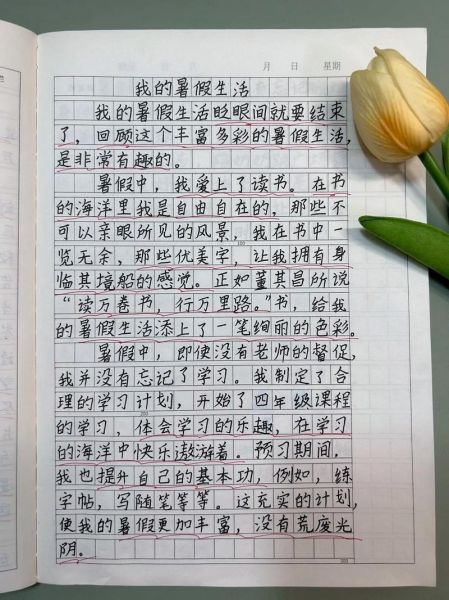 月 日 星期
我的暑假生活
我的暑假生活眨眼间就要结束
了，回顾这个丰富多彩的暑假生活，
是非常有趣的。
暑假中，我爱上了读书。在书
的海洋里我是自由自在的，那些不
可以亲眼所见的风景，我在书中一
览无余，那些优美字，让我拥有身
临其境般的感觉。正如董其昌所说
“读万卷书，行万里路。”书，给我
的暑假生活添上了一笔绚丽的色彩。
暑假中，即使没有老师的督促，
我并没有忘记了学习。我制定了合
理的学习计划，开始了四年级课程
的学习，体会学习的乐趣，在学习
的海洋中快乐遨游着。预习期间，
我也提升自己的基本功，例如，练
字帖，写随笔等等。这充实的计划，
使我的暑假更加丰富，没有荒废光
阴。